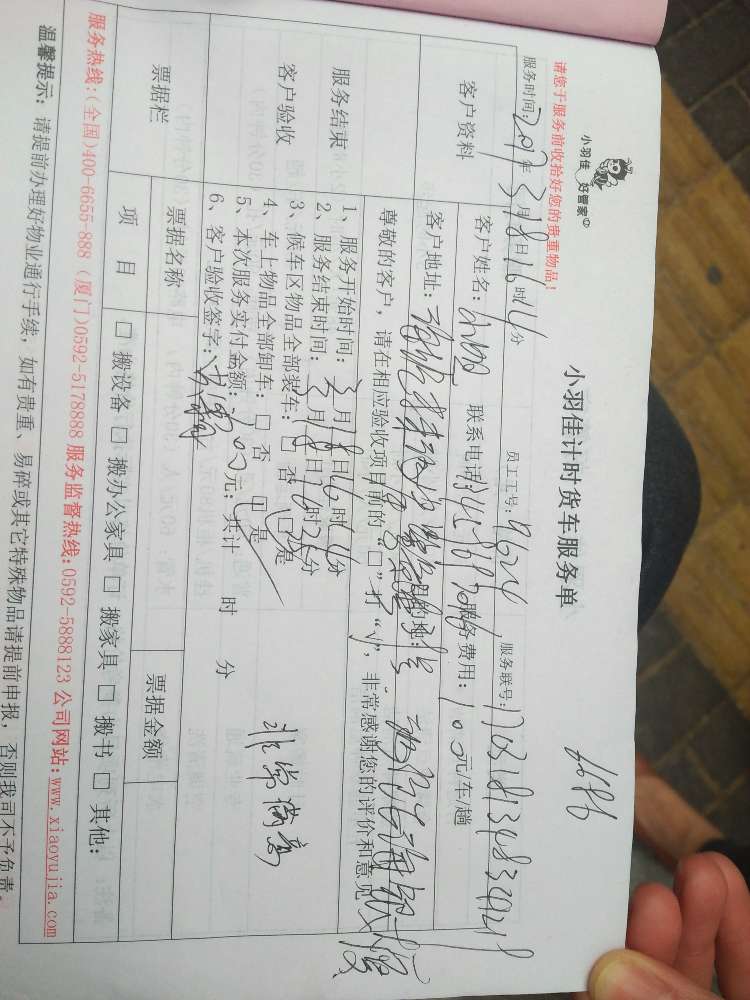 小羽佳 好管家
小羽佳计时货车服务单
请您于服务前收拾好您的贵重物品！
员工工号：9624 服务联号：
服务时间：2017年3月18日16时4分
客户资料
客户姓名： 联系电话： 服务费用：100元/车/趟
客户地址： 目的地：
尊敬的客户，请在相应验收项目前的“□”打“√”，非常感谢您的评价和意见
服务结束
客户验收
1、服务开始时间：3月18日16时4分
2、服务结束时间：3月18日16时35分
3、候车区物品全部装车：□ 否 □ 是
4、车上物品全部卸车：□ 否 □ 是
5、本次服务实付金额：200元；共计 时 分
6、客户验收签字：
非常满意
票据栏
票据名称 票据金额
项 目
□ 搬设备 □ 搬办公家具 □ 搬家具 □ 搬书 □ 其他：
服务热线：(全国)400-6655-888 (厦门)0592-5178888 服务监督热线：0592-5888123 公司网站：www.xiaoyujia.com
温馨提示：请提前办理好物业通行手续，如有贵重、易碎或其它特殊物品请提前申报，否则我司不予负责。